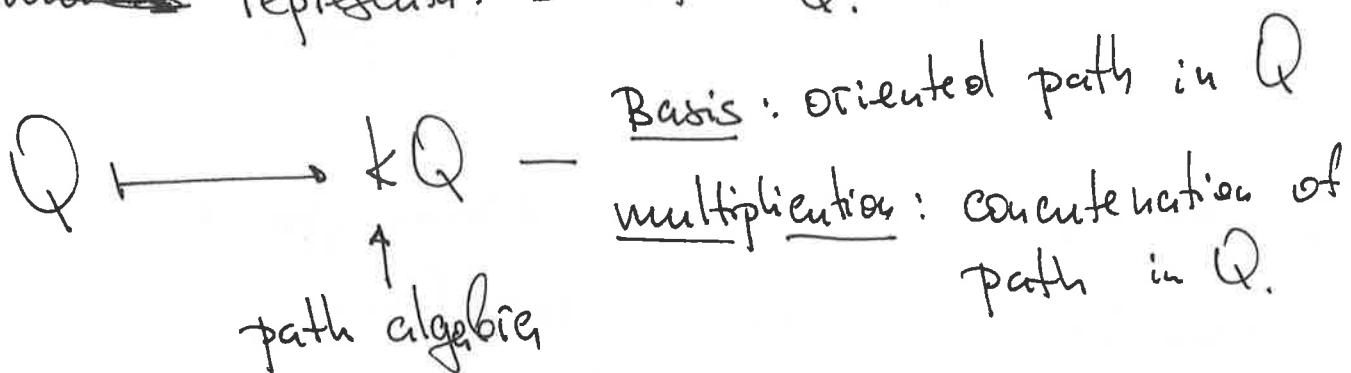 Q.
Basis : oriented path in Q
Q ⟼ kQ —
multiplication : concatenation of
path in Q.
↑
path algebra